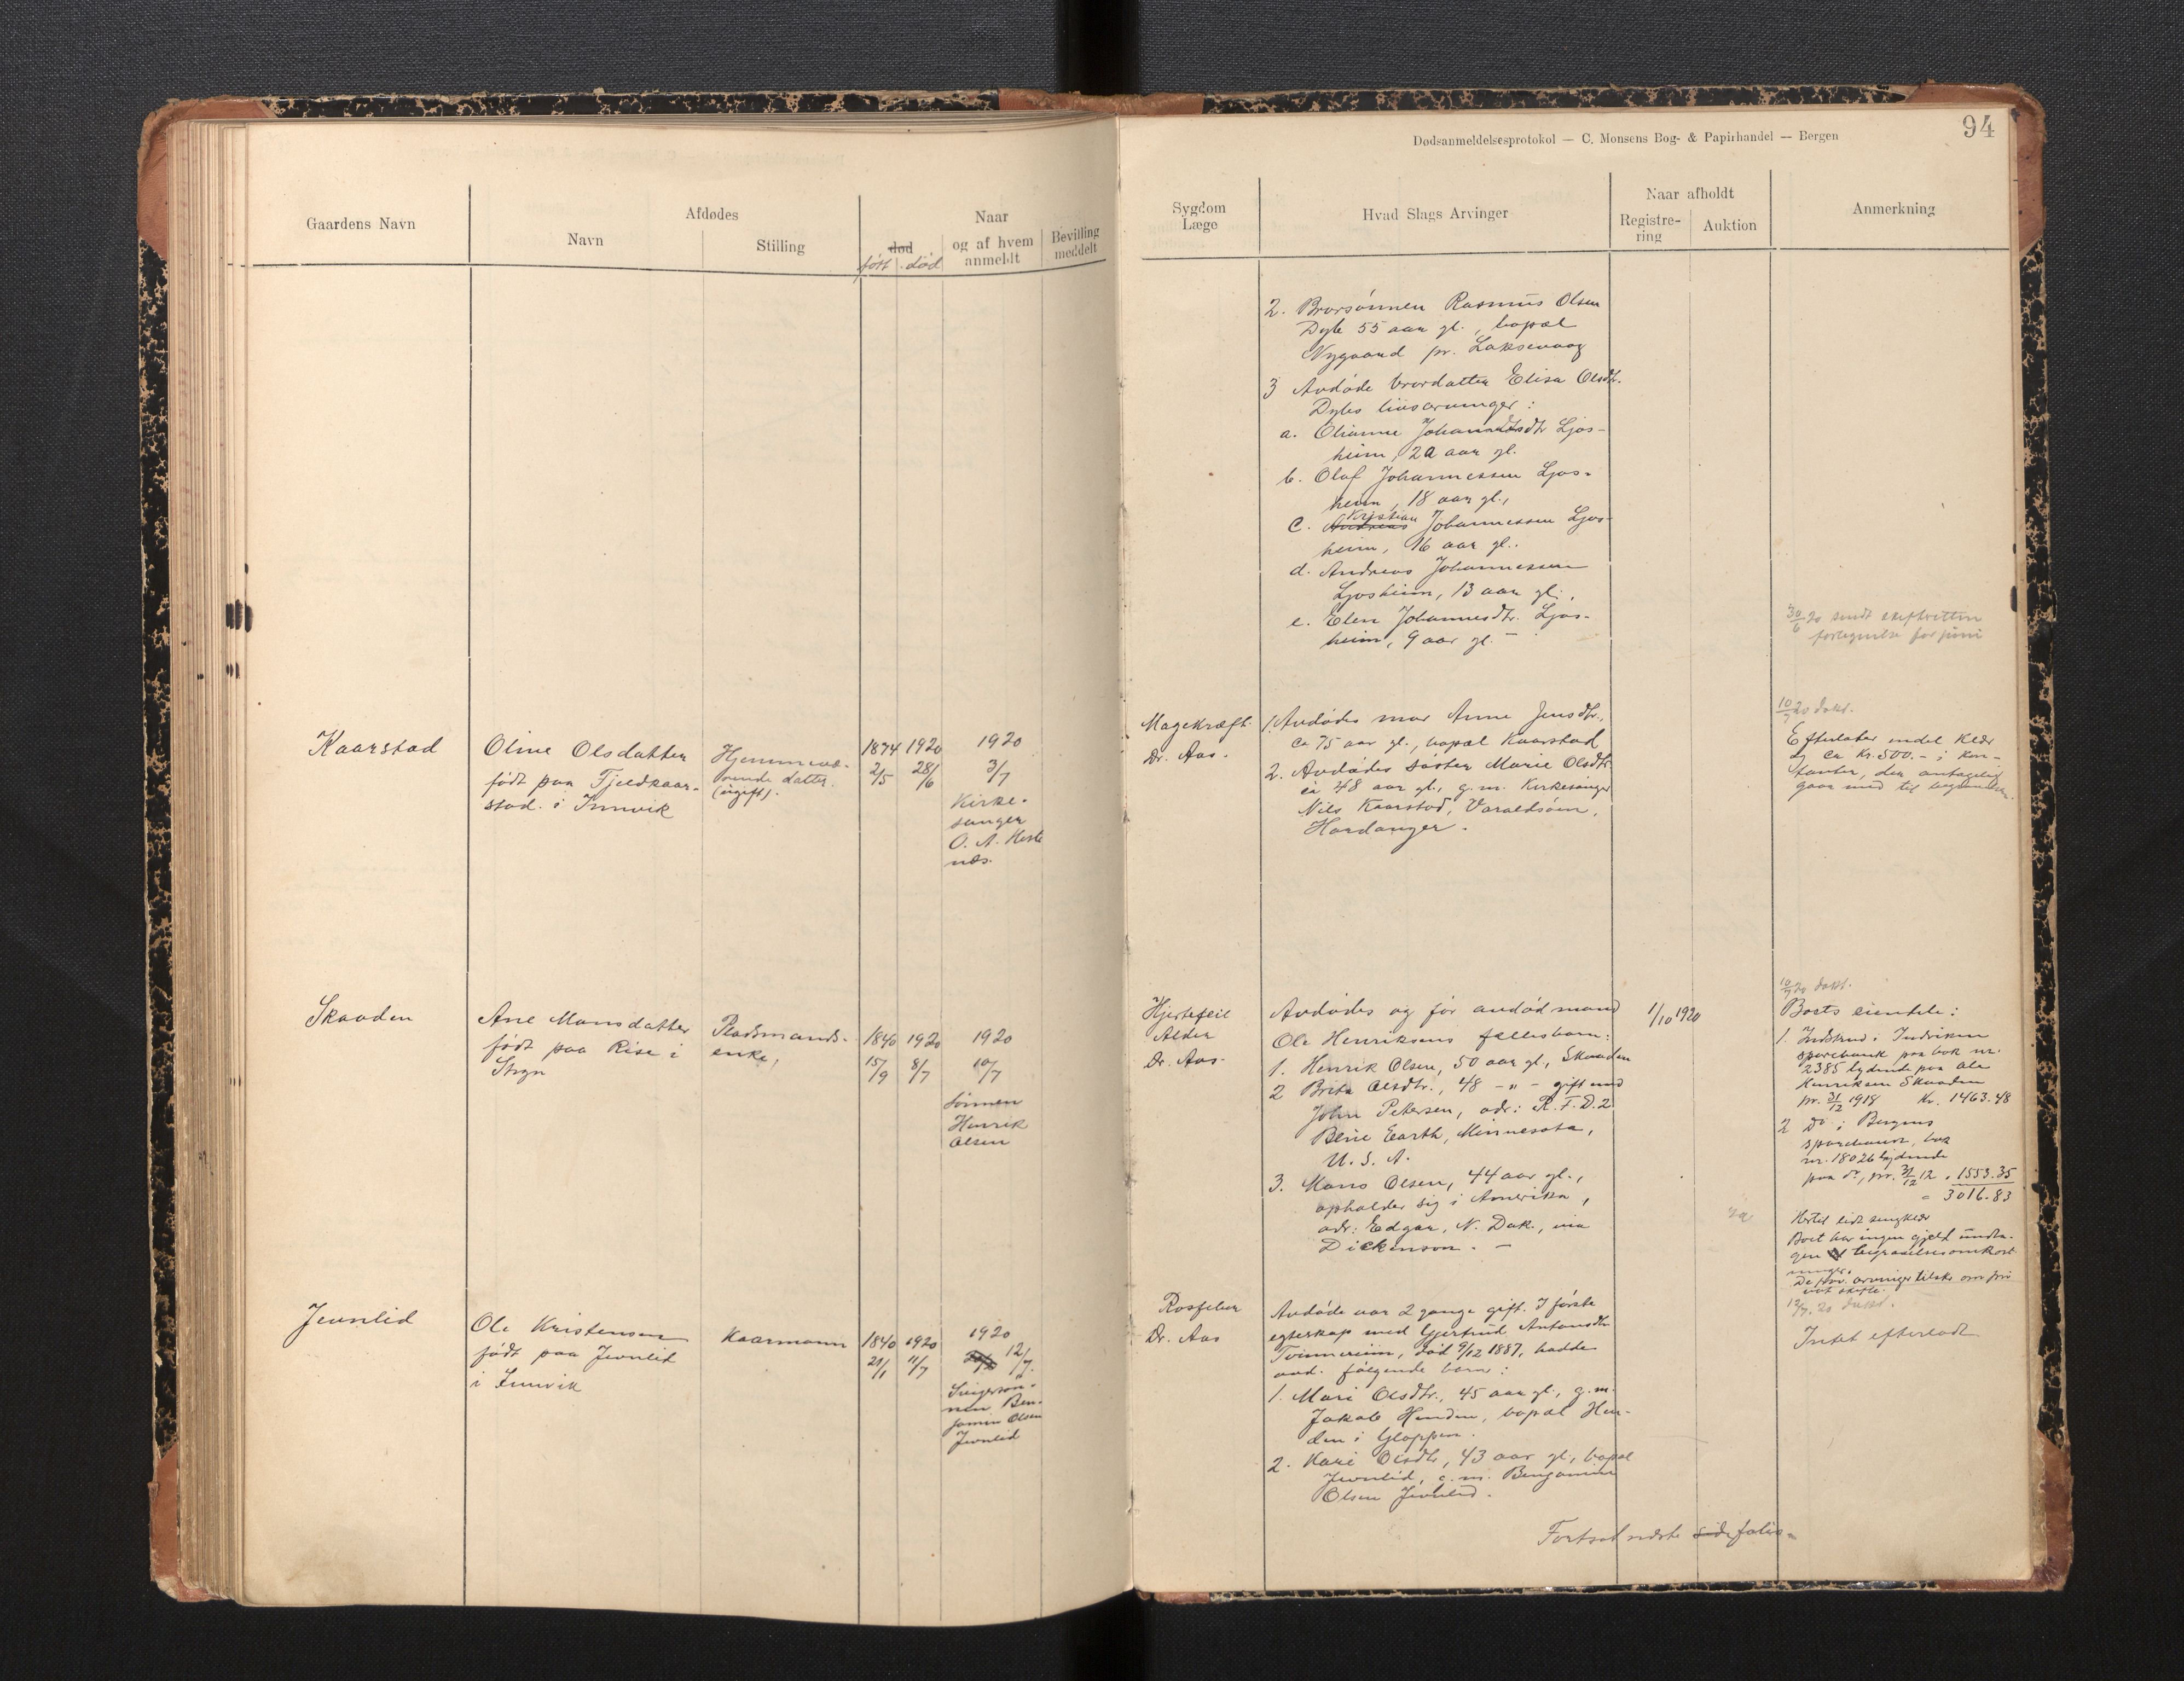 94
Dødsanmeldelsesprotokol — C. Monsens Bog- & Papirhandel — Bergen
Gaardens Navn
Afdødes
Navn
Stilling
død
født død
Naar
og af hvem
anmeldt
Bevilling
meddelt
Sygdom
Læge
Hvad Slags Arvinger
Naar afholdt
Registre-
ring
Auktion
Anmerkning
2. Brorsønnen Rasmus Olsen
Dybe 55 aar gl., bopæl
Nygaard pr. Laksevaag
3 Avdøde brordatter Elisa Olsdtr.
Dybes livsarvinger:
a. Olianne Johannesdtr Ljos-
heim, 22 aar gl.
b. Olaf Johannessen Ljos-
heim, 18 aar gl.,
c. Andreas Kristian Johannessen Ljos-
heim, 16 aar gl.
d. Andreas Johannessen
Ljosheim, 13 aar gl.,
e. Elen Johannesdtr. Ljos-
heim, 9 aar gl. —
30/6 20 sendt skifteretten
fortegnelse for juni
Kaarstad
Oline Olsdatter
født paa Fjeldkaar-
stad i Innvik
Hjemmevæ-
rende datter
(ugift).
1874 1920
2/5 28/6
1920
3/7
Kirke-
sanger
O. A. Heste
næs.
Magekræft.
Dr. Aas.
1. Avdødes mor Anne Jensdtr.,
ca 75 aar gl., bopæl Kaarstad
2. Avdødes søster Marie Olsdtr.
ca 48 aar gl., g.m. Kirkesanger
Nils Kaarstad, Varaldsøen,
Hardanger.
10/7 20 dokt.
Efterlater endel klær
og ca kr. 500.- i kon-
tanter, der antagelig
gaar med til begravelsen.
Skaaden
Ane Monsdatter
født paa Rise i
Stryn
Pladsmands-
enke,
1840 1920
15/9 8/7
1920
10/7
Sønnen
Henrik
Olsen
Hjertefeil
Alder
Dr. Aas.
Avdødes og før avdød mand
Ole Henriksens fællesbarn:
1. Henrik Olsen, 50 aar gl., Skaaden
2 Brita Olsdtr., 48 -"- gift med
John Petersen, adr: R.F.D. 2
Blue Earth, Minnesota,
U.S.A.
3. Mons Olsen, 44 aar gl.,
opholder sig i Amerika,
adr: Edgar, N. Dak., via
Dickenson. —
1/10 1920
10/7 20 dokt.
Boets eiendele:
1. Indskud i Indviken
sparebank paa bok nr.
2385 lydende paa Ole
Henriksen Skaaden
pr. 31/12 1918 Kr. 1463.48
2 Do i Bergens
sparebank, bok
nr. 18026 lydende
paa do, pr. 31/12 12 " 1553.35
" 3016.83
Hertil lidt sengklær
Boet har ingen gjeld undta-
gen begravelsesomkost-
ninger.
De arvinger tilsk. om pri-
vat skifte.
12/7. 20 dokt.
Jevnlid
Ole Kristensen
født paa Jevnlid
i Innvik
Kaarmann
1840 1920
21/1 11/7
1920
12/7.
Svigersøn-
nen Ben-
jamin Olsen
Jevnlid
Rosfeber
Dr. Aas
Avdøde var 2 gange gift. I første
egteskap med Gjertrud Antonsdtr
Tvinnereim, død 9/12 1887, hadde
avd. følgende barn:
1. Mari Olsdtr., 45 aar gl., g.m.
Jakob Henden, bopæl Hen-
den i Gloppen.
2. Kari Olsdtr, 43 aar gl., bopæl
Jevnlid, g.m. Benjamin
Olsen Jevnlid.
Intet efterladt
Fortsat næste side folio